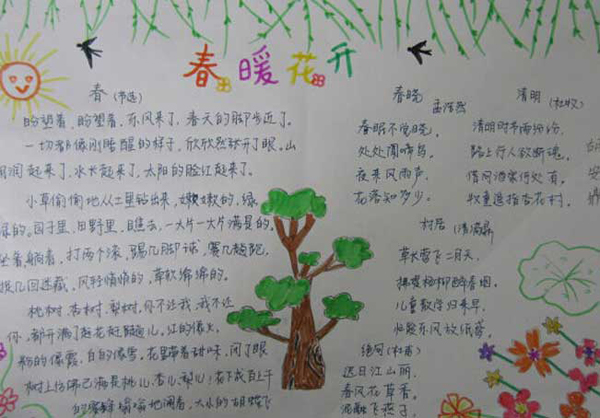 春暖花开
春（节选）
盼望着，盼望着，东风来了，春天的脚步近了。
一切都像刚睡醒的样子，欣欣然张开了眼。山
朗润起来了，水长起来了，太阳的脸红起来了。
小草偷偷地从土里钻出来，嫩嫩的，绿
绿的。园子里，田野里，瞧去，一大片一大片满是的。
坐着，躺着，打两个滚，踢几脚球，赛几趟跑，
捉几回迷藏。风轻悄悄的，草软绵绵的。
桃树、杏树、梨树，你不让我，我不让
你，都开满了花赶趟儿。红的像火，
粉的像霞，白的像雪。花里带着甜味，闭了眼
树上仿佛已满是桃儿、杏儿、梨儿；花下成百上千
的蜜蜂嗡嗡地闹着，大小的蝴蝶飞
春晓
孟浩然
春眠不觉晓，
处处闻啼鸟。
夜来风雨声，
花落知多少。
清明（杜牧）
清明时节雨纷纷，
路上行人欲断魂。
借问酒家何处有，
牧童遥指杏花村。
村居（清高鼎）
草长莺飞二月天，
拂堤杨柳醉春烟。
儿童散学归来早，
忙趁东风放纸鸢。
绝句（杜甫）
迟日江山丽，
春风花草香。
泥融飞燕子，